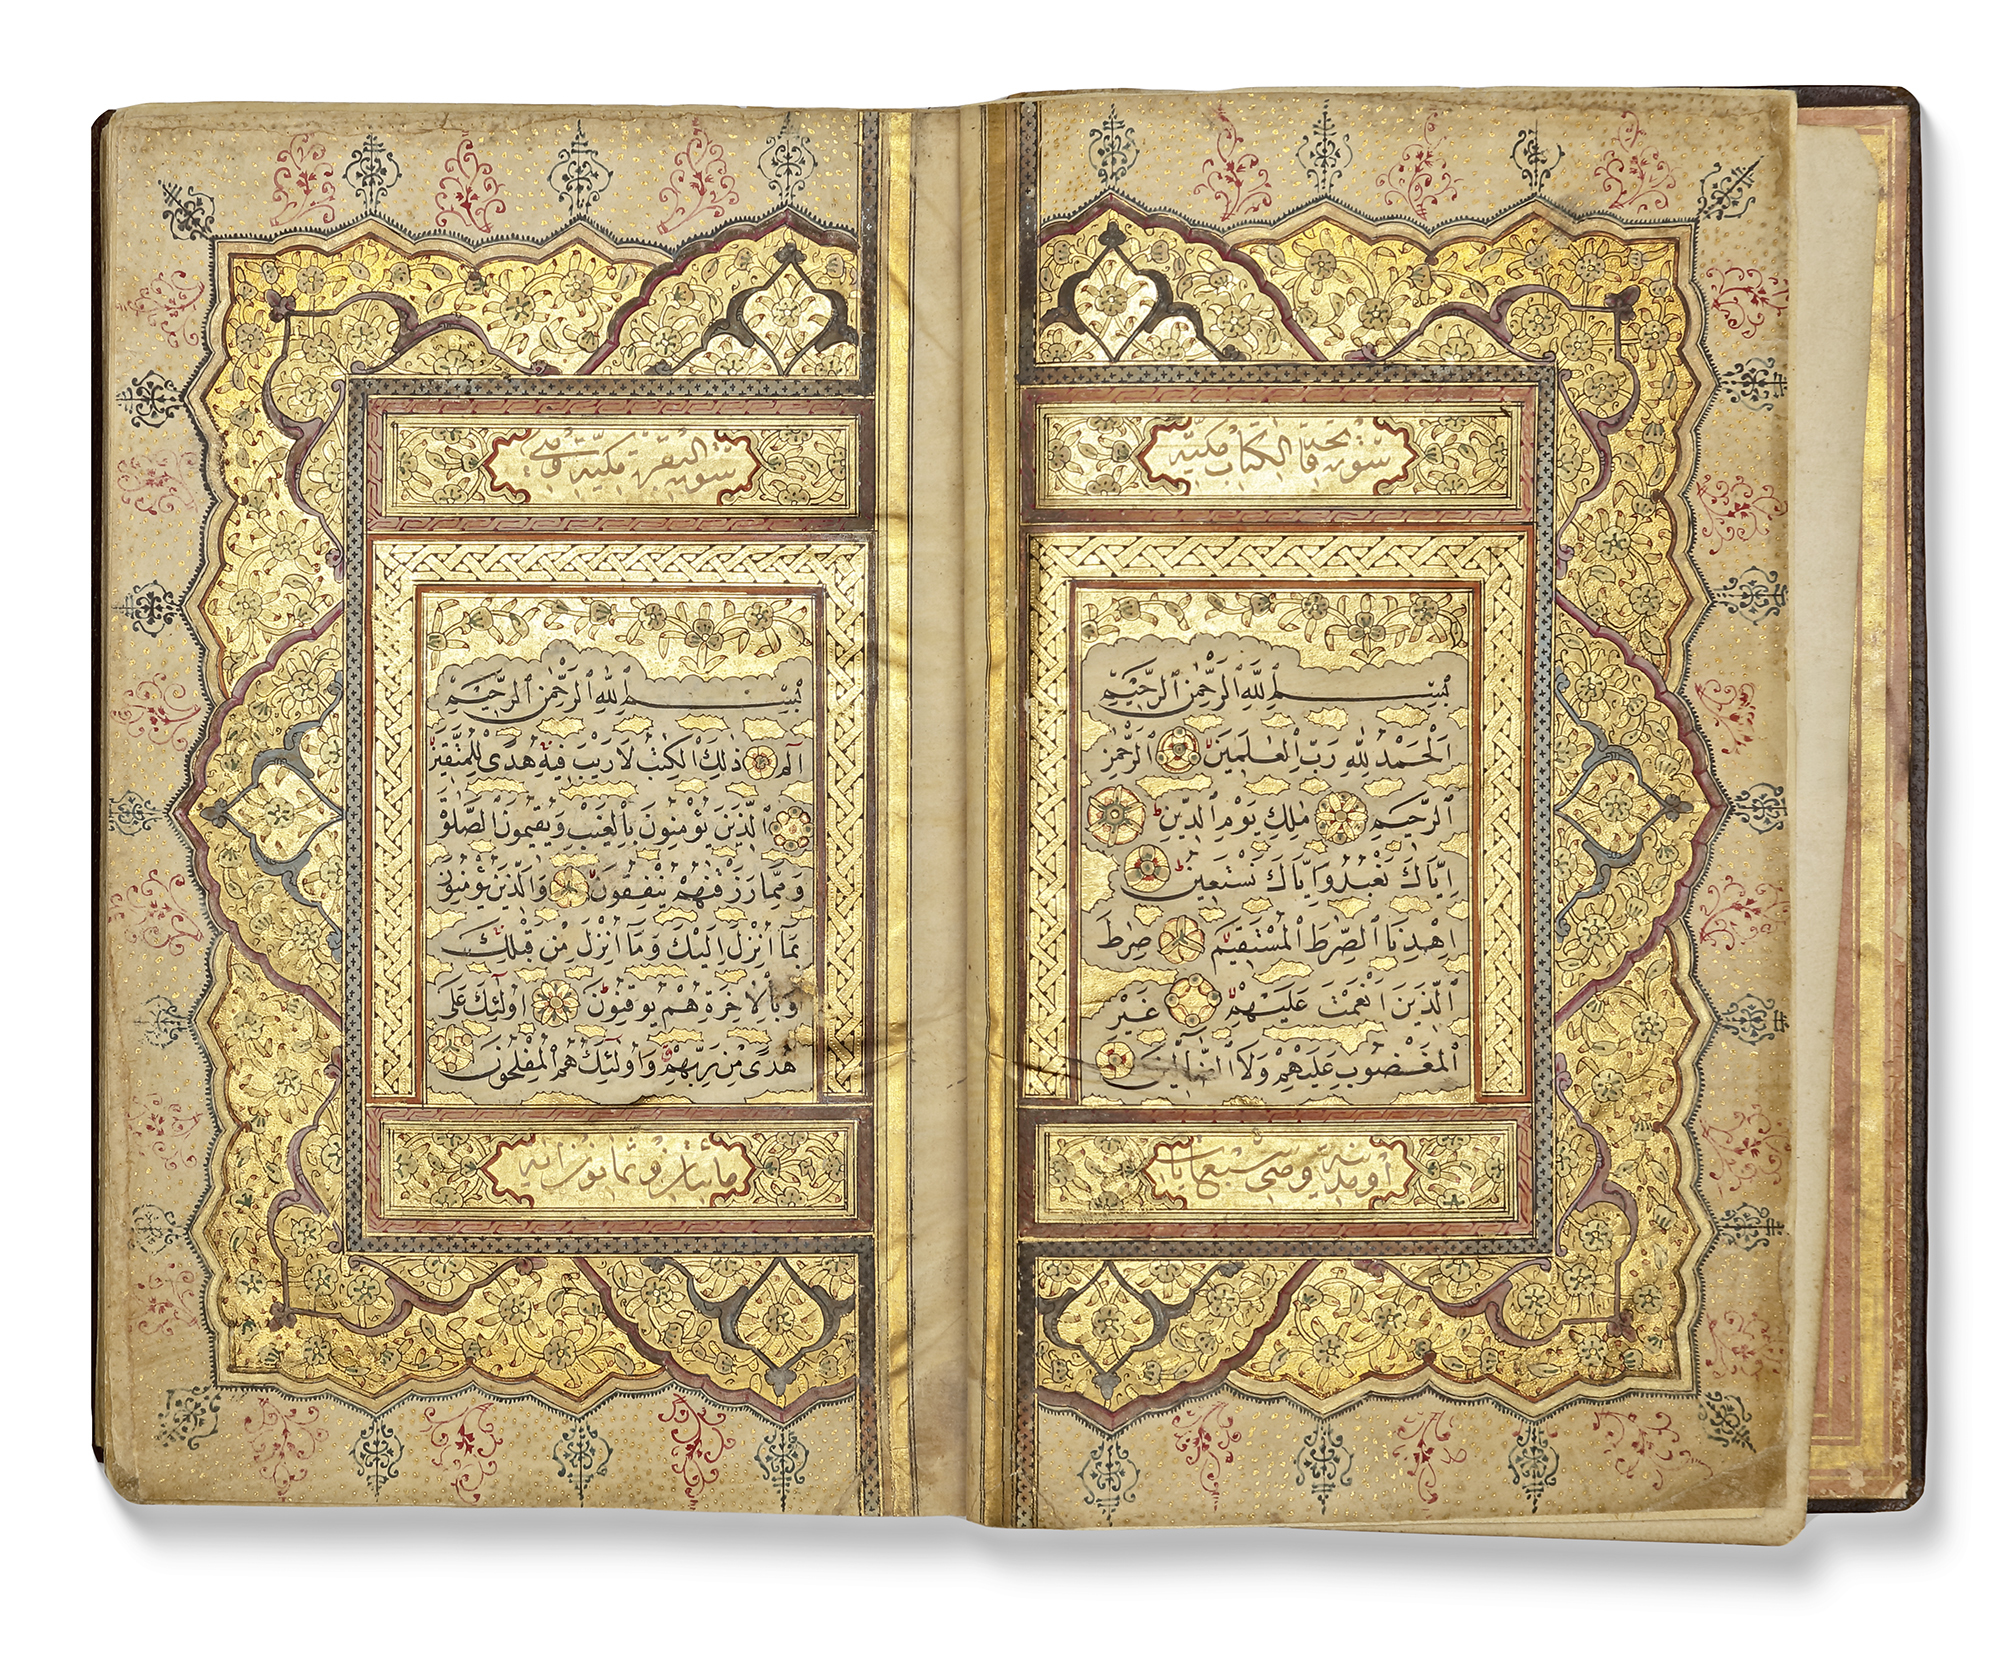 سورة فاتحة الكتاب مكية
بِسْمِ ٱللَّهِ ٱلرَّحْمٰنِ ٱلرَّحِيمِ
اَلْحَمْدُ لِلّٰهِ رَبِّ ٱلْعٰلَمِينَ ٱلرَّحْمٰنِ
ٱلرَّحِيمِ مٰلِكِ يَوْمِ ٱلدِّينِ ط
اِيَّاكَ نَعْبُدُ وَاِيَّاكَ نَسْتَعِينُ ط
اِهْدِنَا ٱلصِّرٰطَ ٱلْمُسْتَقِيمَ صِرٰطَ
ٱلَّذِينَ اَنْعَمْتَ عَلَيْهِمْ غَيْرِ
ٱلْمَغْضُوبِ عَلَيْهِمْ وَلَا ٱلضَّالِّينَ
او مدنية وهي سبع ايات
سورة البقرة مكية وهي
بِسْمِ ٱللَّهِ ٱلرَّحْمٰنِ ٱلرَّحِيمِ
الٓمٓ ذٰلِكَ ٱلْكِتٰبُ لَا رَيْبَ فِيهِ هُدًى لِلْمُتَّقِينَ
ٱلَّذِينَ يُؤْمِنُونَ بِٱلْغَيْبِ وَيُقِيمُونَ ٱلصَّلٰوةَ
وَمِمَّا رَزَقْنٰهُمْ يُنْفِقُونَ وَٱلَّذِينَ يُؤْمِنُونَ
بِمَٓا اُنْزِلَ اِلَيْكَ وَمَٓا اُنْزِلَ مِنْ قَبْلِكَ
وَبِٱلْاٰخِرَةِ هُمْ يُوقِنُونَ ط اُولٰٓئِكَ عَلٰى
هُدًى مِنْ رَبِّهِمْ وَاُولٰٓئِكَ هُمُ ٱلْمُفْلِحُونَ
مائتان وثمانون اية